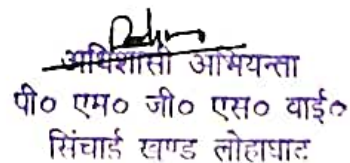 अधिशासी अभियन्ता
पी० एम० जी० एस० वाई०
सिंचाई खण्ड लोहाघाट